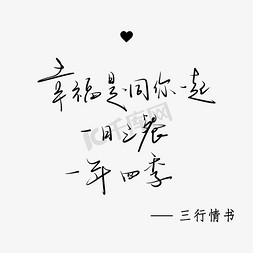 幸福是同你一起
一日三餐
一年四季
—— 三行情书